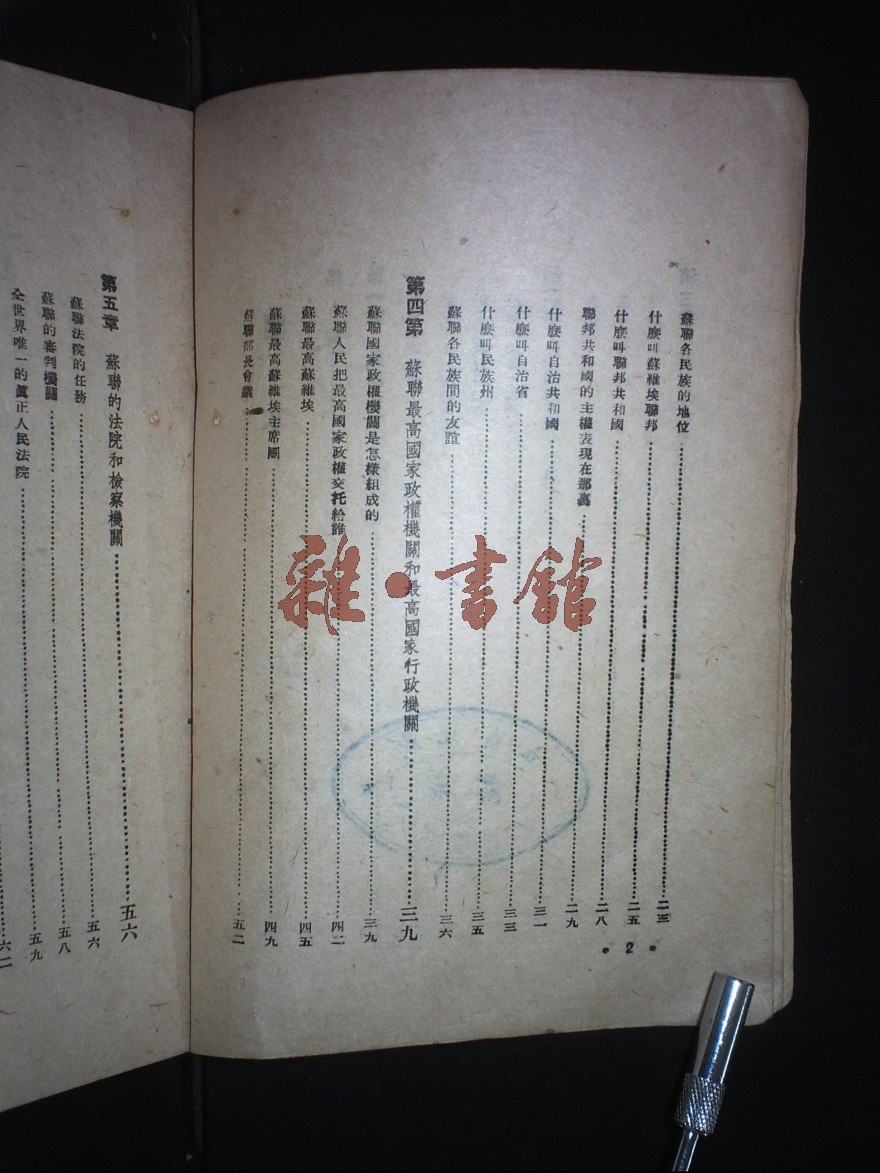 蘇聯各民族的地位……二三
什麼叫蘇維埃聯邦……二五
什麼叫聯邦共和國……二八
聯邦共和國的主權表現在那裏……二九
什麼叫自治共和國……三一
什麼叫自治省……三三
什麼叫民族州……三五
蘇聯各民族間的友誼……三六
第四第 蘇聯最高國家政權機關和最高國家行政機關……三九
蘇聯國家政權機關是怎樣組成的……三九
蘇聯人民把最高國家政權交托給誰……四二
蘇聯最高蘇維埃……四五
蘇聯最高蘇維埃主席團……四九
蘇聯部長會議……五二
•2•
第五章 蘇聯的法院和檢察機關……五六
蘇聯法院的任務……五六
蘇聯的審判機關……五八
全世界唯一的眞正人民法院……五九
六二
雜•書館